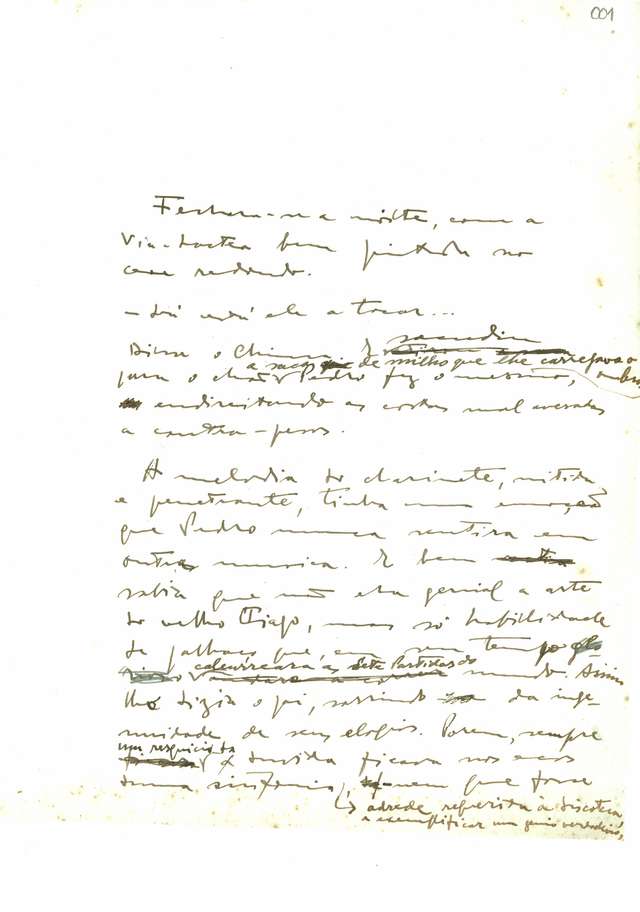 001
Fechara-se a noite, com a
Via-Lactea bem pintada no
ceu redondo.
— Lá está ele a tocar...
Disse o China. E sacudiu
a saca de milho que lhe carregava o ombro
para o chão. Pedro fez o mesmo,
endireitando as costas mal avesadas
a contra-pesos.
A melodia do clarinete, nitida
e penetrante, tinha uma emoção
que Pedro nunca sentira em
outra musica. E bem
sabia que não era genial a arte
do velho Tiago, mas só habilidade
de palhaço que, em seu tempo
calcurreara as Sete Partidas do
mundo. Assim
lho dizia o pai, sorrindo da inge-
nuidade de seus elogios. Porem, sempre
um resquicio da
duvida ficava nos ecos
duma sinfonia, nem que fosse
adrede requerida à discoteca
a exemplificar um genio verdadeiro,